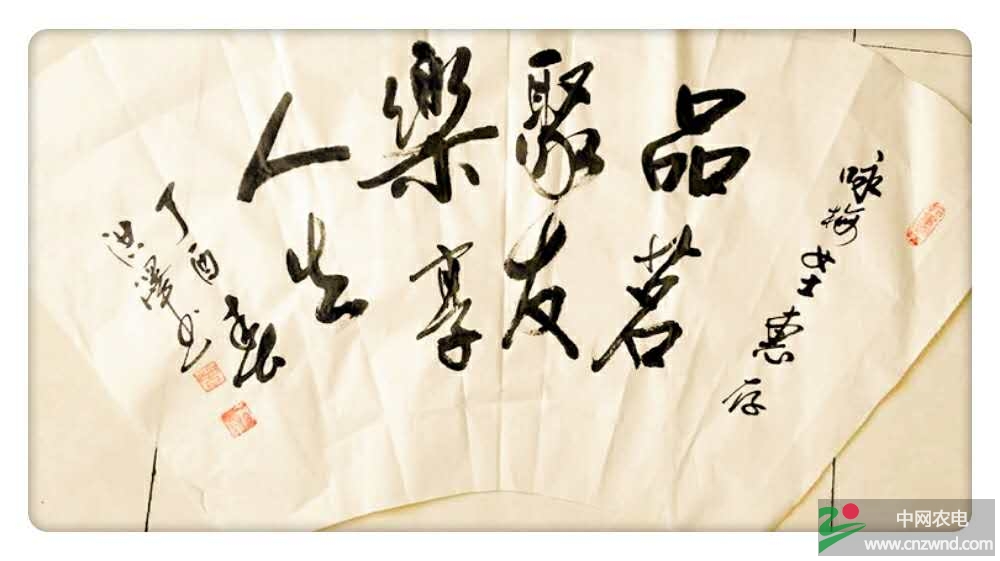 咏梅女士惠存
品茗
聚友
樂享
人生
丁酉春
洪澤书
中网农电
www.cnzwnd.com